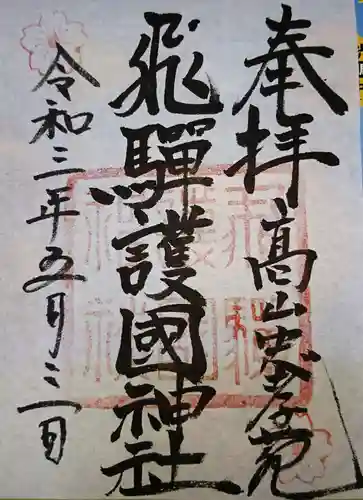 奉拝 高山忠孝苑
飛驒護國神社
令和三年五月二日